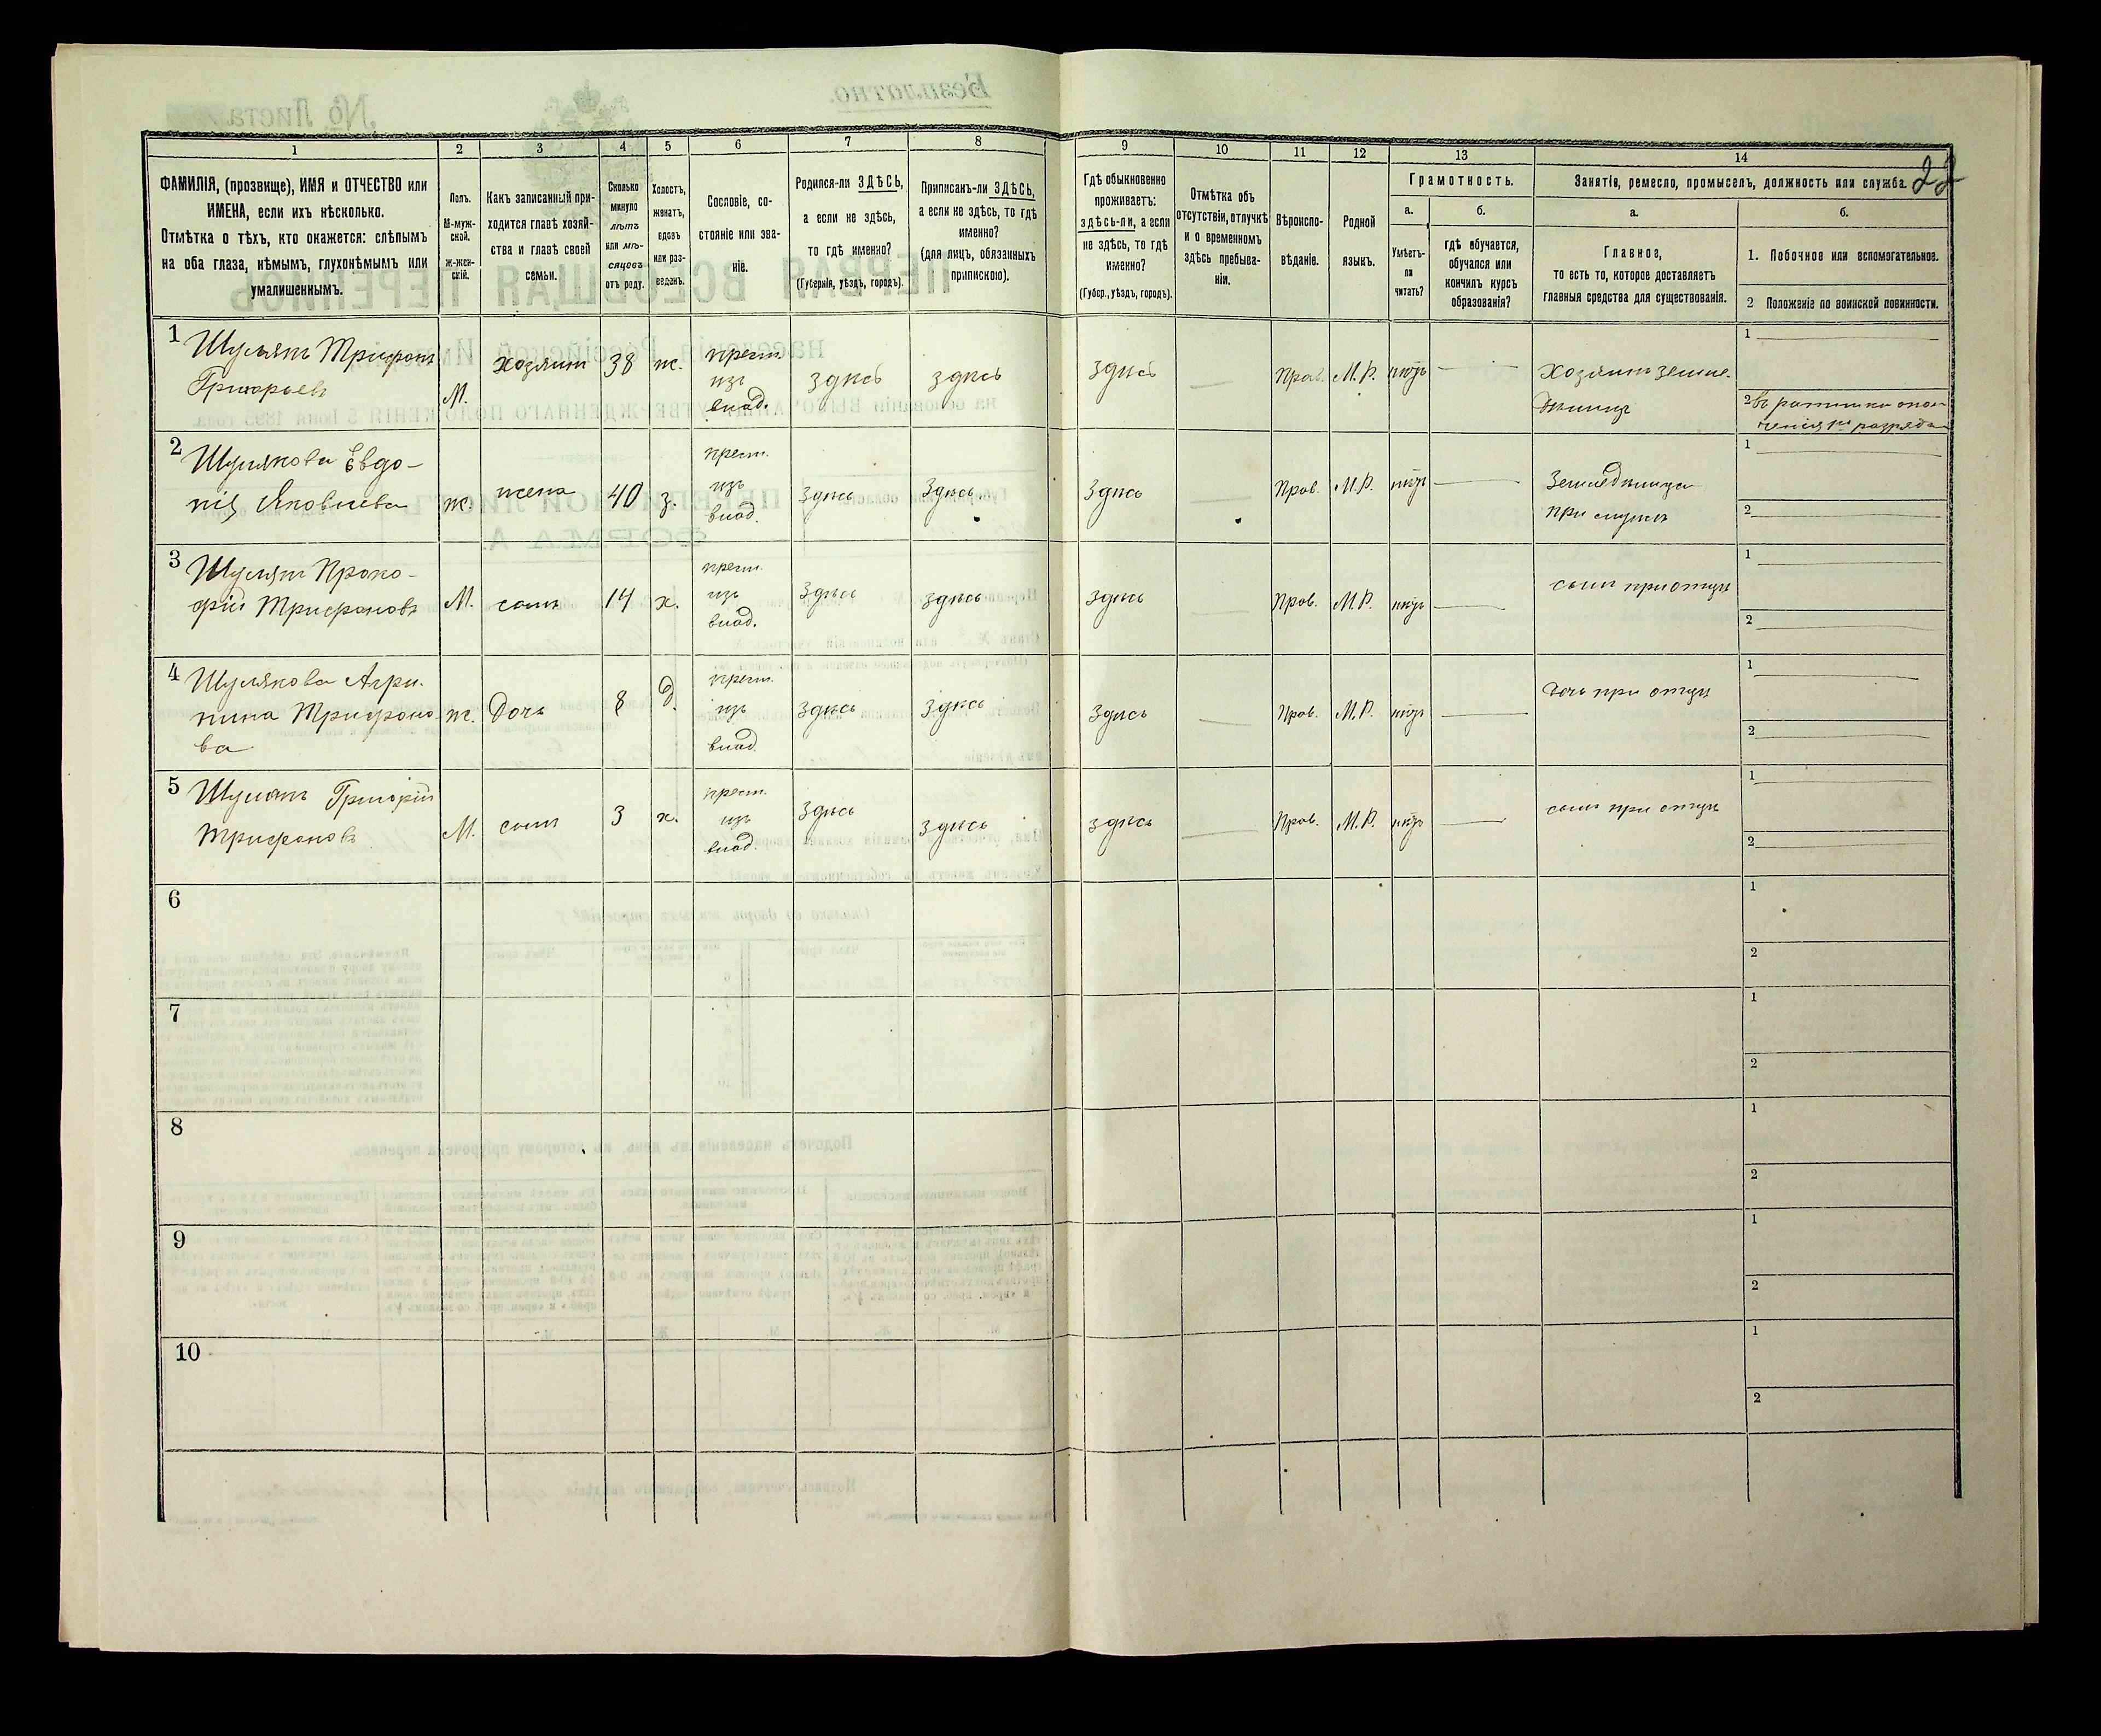 1
2
3
4
5
6
7
8
9
10
11
12
13
14
22
ФАМИЛІЯ, (прозвище), ИМЯ и ОТЧЕСТВО или
ИМЕНА, если ихъ нѣсколько.
Отмѣтка о тѣхъ, кто окажется: слѣпымъ
на оба глаза, нѣмымъ, глухонѣмымъ или
умалишеннымъ.
Полъ.
М-муж-
ской.
ж-жен-
скій.
Какъ записанный при-
ходится главѣ хозяй-
ства и главѣ своей
семьи.
Сколько
минуло
лѣтъ
или мѣ-
сяцевъ
отъ роду.
Холостъ,
женатъ,
вдовъ
или раз-
веденъ.
Сословіе, со-
стояніе или зва-
ніе.
Родился-ли ЗДѢСЬ,
а если не здѣсь,
то гдѣ именно?
(Губернія, уѣздъ, городъ).
Приписанъ-ли ЗДѢСЬ,
а если не здѣсь, то гдѣ
именно?
(для лицъ, обязанныхъ
припискою).
Гдѣ обыкновенно
проживаетъ:
здѣсь-ли, а если
не здѣсь, то гдѣ
именно?
(Губер., уѣздъ, городъ).
Отмѣтка объ
отсутствіи, отлучкѣ
и о временномъ
здѣсь пребыва-
ніи.
Вѣроиспо-
вѣданіе.
Родной
языкъ.
Грамотность.
а.
Умѣетъ-
ли
читать?
б.
гдѣ обучается,
обучался или
кончилъ курсъ
образованія?
Занятіе, ремесло, промыселъ, должность или служба.
а.
Главное,
то есть то, которое доставляетъ
главныя средства для существованія.
б.
1. Побочное или вспомогательное.
2 Положеніе по воинской повинности.
1 Шулякъ Трифонъ
Григорьевъ
М.
хозяинъ
38
ж.
крест.
изъ
влад.
здѣсь
здѣсь
здѣсь
Прав.
М.Р.
нѣтъ
Хозяинъ земле-
дѣлецъ
1
2 въ ратники опол-
ченія 1го разряда
2 Шулякова Евдо-
кія Яковлева
ж.
жена
40
з.
крест.
изъ
влад.
здѣсь
здѣсь
здѣсь
Прав.
М.Р.
нѣтъ
земледѣлица
при мужѣ
1
2
3 Шулякъ Проко-
фій Трифоновъ
М.
сынъ
14
х.
крест.
изъ
влад.
здѣсь
здѣсь
здѣсь
Прав.
М.Р.
нѣтъ
сынъ при отцѣ
1
2
4 Шулякова Агри-
пина Трифоно-
ва
ж.
дочь
8
д.
крест.
изъ
влад.
здѣсь
здѣсь
здѣсь
Прав.
М.Р.
нѣтъ
дочь при отцѣ
1
2
5 Шулякъ Григорій
Трифоновъ
М.
сынъ
3
х.
крест.
изъ
влад.
здѣсь
здѣсь
здѣсь
Прав.
М.Р.
нѣтъ
сынъ при отцѣ
1
2
6
1
2
7
1
2
8
1
2
9
1
2
10
1
2